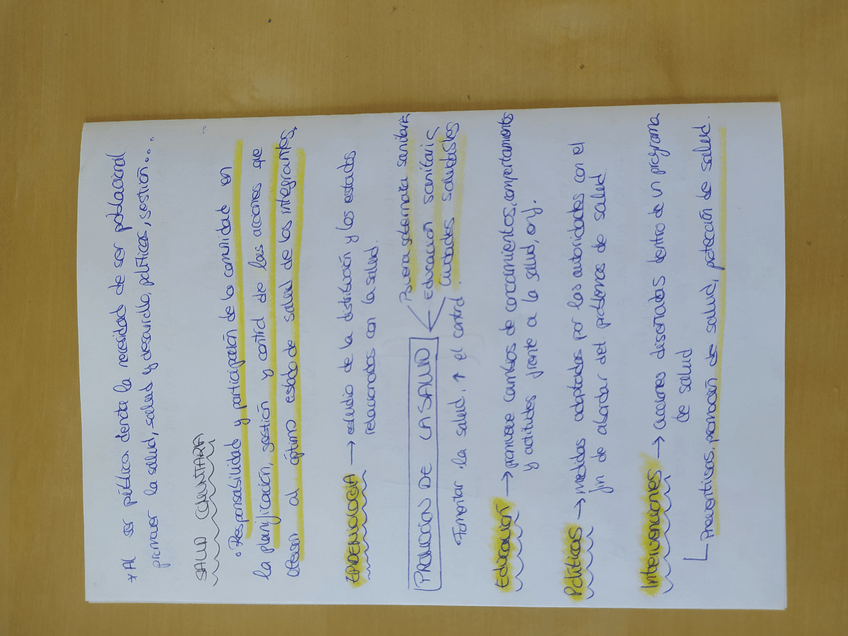 * Al ser pública denota la necesidad de ser poblacional
promover la salud, salud y desarrollo, políticas, gestión...
SALUD COMUNITARIA
° Responsabilidad y participación de la comunidad en
la planificación, gestión y control de las acciones que
llevan al óptimo estado de salud de los integrantes.
EPIDEMIOLOGIA → estudio de la distribución y los estados
relacionados con la salud.
PROMOCION DE LA SALUD
Buena gobernata sanitaria
Educación sanitaria
Ciudades saludables
Fomentar la salud, ↑ el control.
Educación → promueve cambios de conocimientos, comportamientos
y actitudes frente a la salud, org.
Políticas → medidas adoptadas por las autoridades con el
fin de abordar del problemas de salud
Intervenciones → acciones diseñadas dentro de un programa
de salud
Preventivas, promoción de salud, protección de salud.